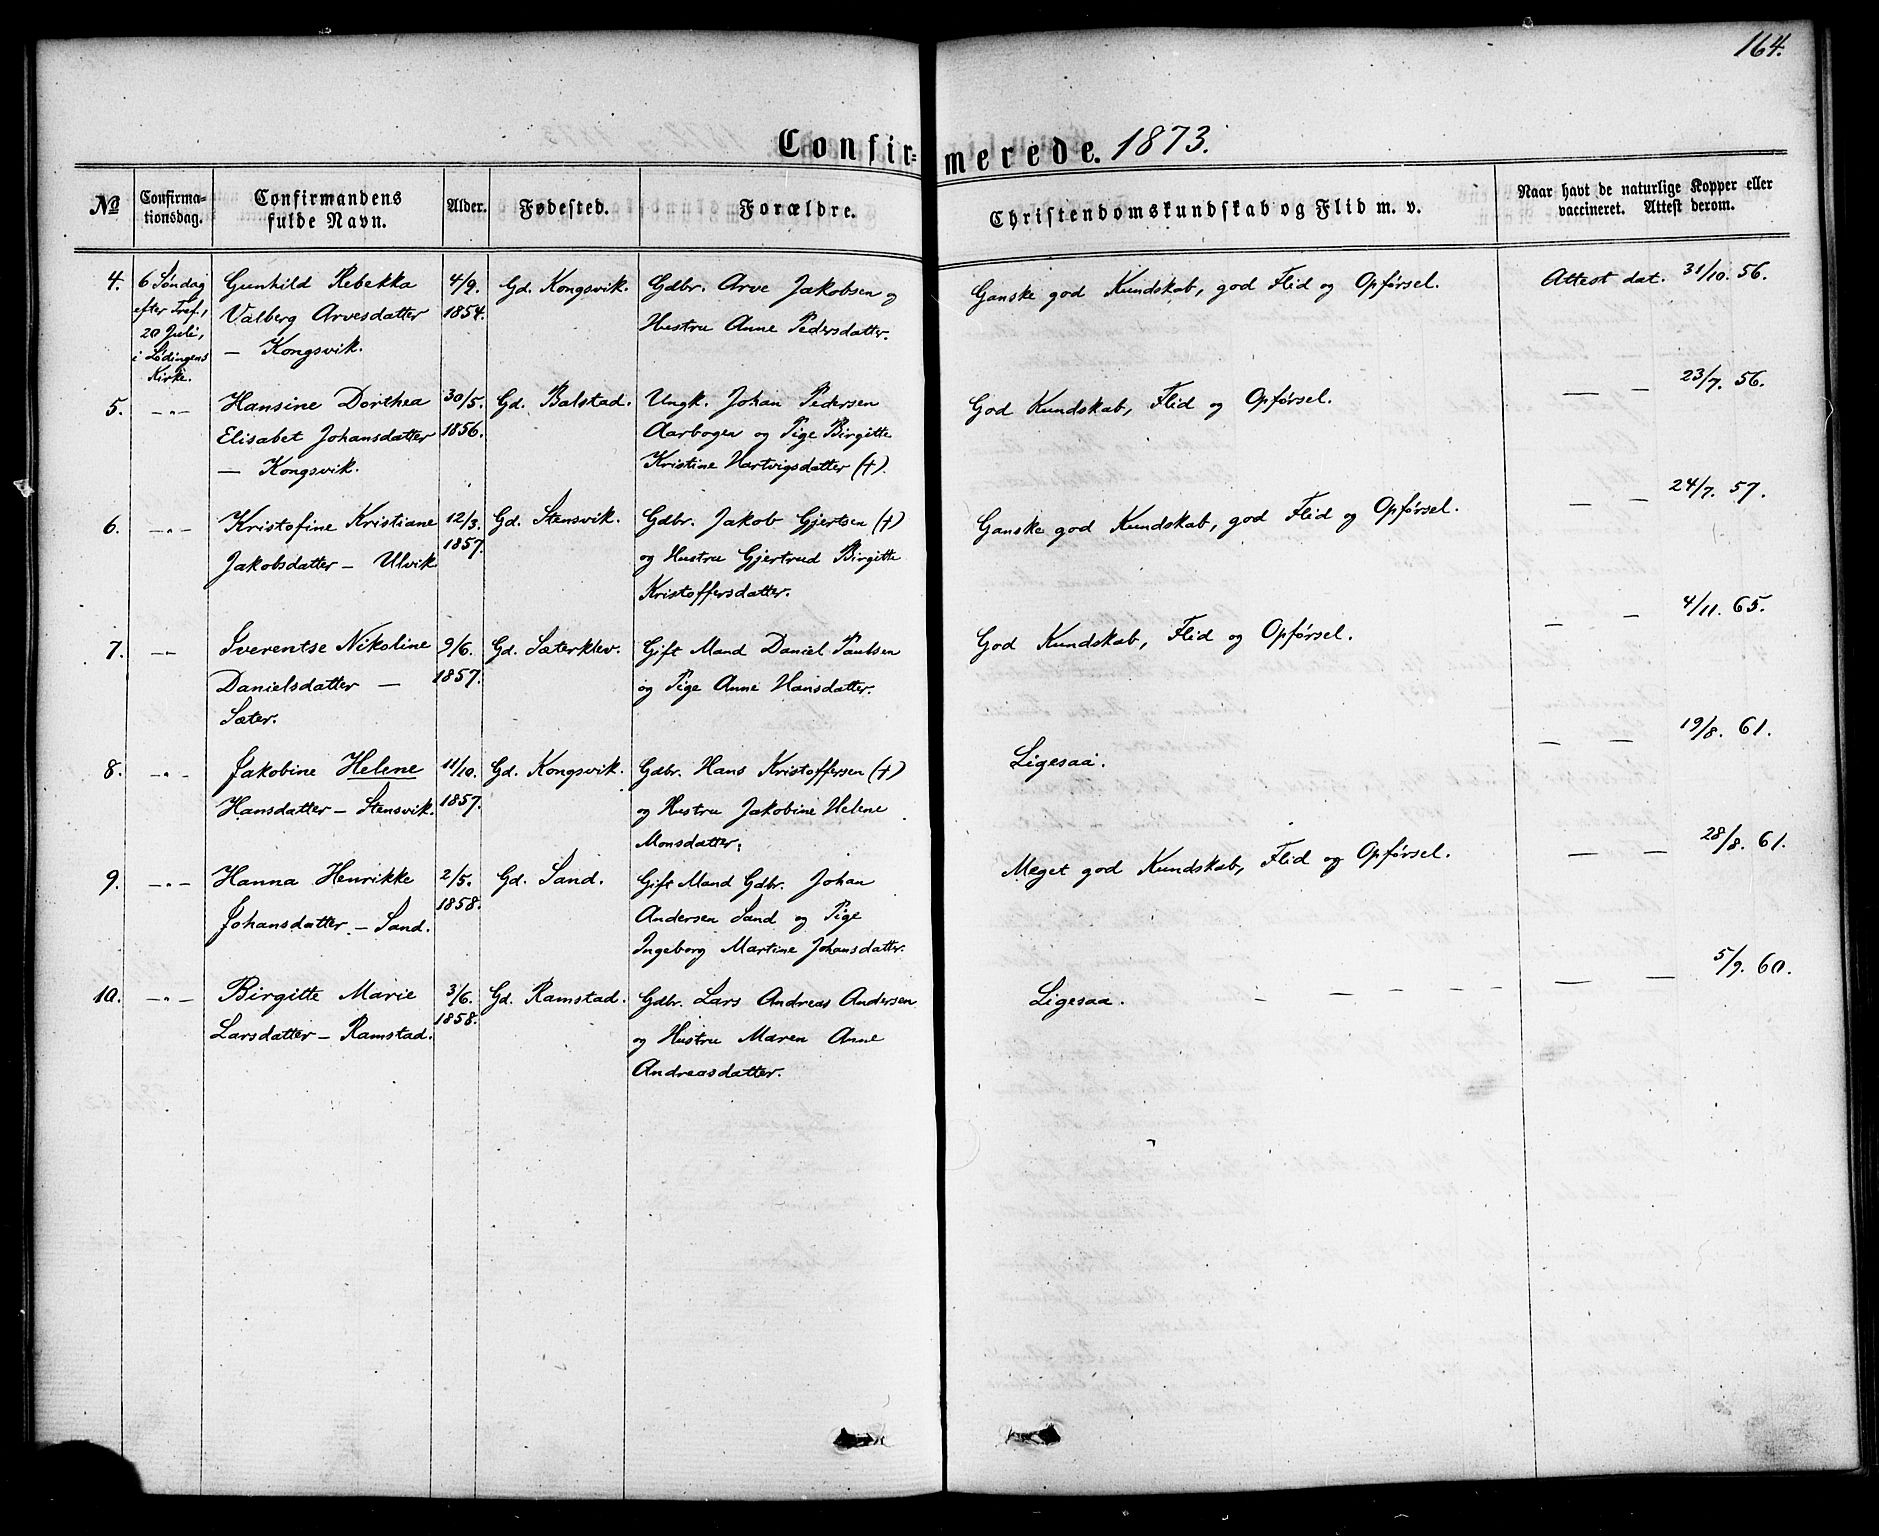 164.
Confir=merede. 1873.
No
Confirma-
tionsdag.
Confirmandens
fulde Navn.
Alder.
Fødested.
Forældre.
Christendomskundskab og Flid m. v.
Naar havt de naturlige Kopper eller
vaccineret. Attest derom.
4.
6 Søndag
efter Tref.,
20 Juli,
i Lødingens
Kirke.
Gunhild Rebekka
Valberg Arvesdatter
— Kongsvik.
4/9.
1854.
Gd. Kongsvik.
Gdbr. Arve Jakobsen og
Hustru Anne Pedersdatter.
Ganske god Kundskab, god Flid og Opførsel.
Attest dat. 31/10. 56.
5.
— „ —
Hansine Dorthea
Elisabet Johansdatter
— Kongsvik.
30/5.
1856.
Gd. Balstad.
Ungk. Johan Pedersen
Aarbogen og Pige Birgitte
Kristine Hartvigsdatter (†).
God Kundskab, Flid og Opførsel.
— — 23/7. 56.
6.
— „ —
Kristofine Kristiane
Jakobsdatter — Ulvik
12/3.
1857.
Gd. Stensvik.
Gdbr. Jakob Gjertsen (†)
og Hustru Gjertrud Birgitte
Kristoffersdatter.
Ganske god Kundskab, god Flid og Opførsel.
— — 24/7. 57.
7.
— —
Sverentse Nikoline
Danielsdatter —
Sæter.
9/6.
1857.
Gd. Sæterklev.
Gift Mand Daniel Paulsen
og Pige Anne Hansdatter.
God Kundskab, Flid og Opførsel.
— — 4/11. 65.
8.
— „ —
Jakobine Helene
Hansdatter — Stensvik.
11/10.
1857.
Gd. Kongsvik.
Gdbr. Hans Kristoffersen (†)
og Hustru Jakobine Helene
Monsdatter.
Ligesaa.
— — 19/8. 61.
9.
— „ —
Hanna Henrikke
Johansdatter. — Sand.
2/5.
1858.
Gd. Sand.
Gift Mand Gdbr. Johan
Andersen Sand og Pige
Ingeborg Martine Johansdatter.
Meget god Kundskab, Flid og Opførsel.
— — 28/8. 61.
10.
— „ —
Birgitte Marie
Larsdatter — Ramstad.
3/6.
1858.
Gd. Ramstad.
Gdbr. Lars Andreas Andersen
og Hustru Maren Anne
Andreasdatter.
Ligesaa.
— — 5/9. 60.